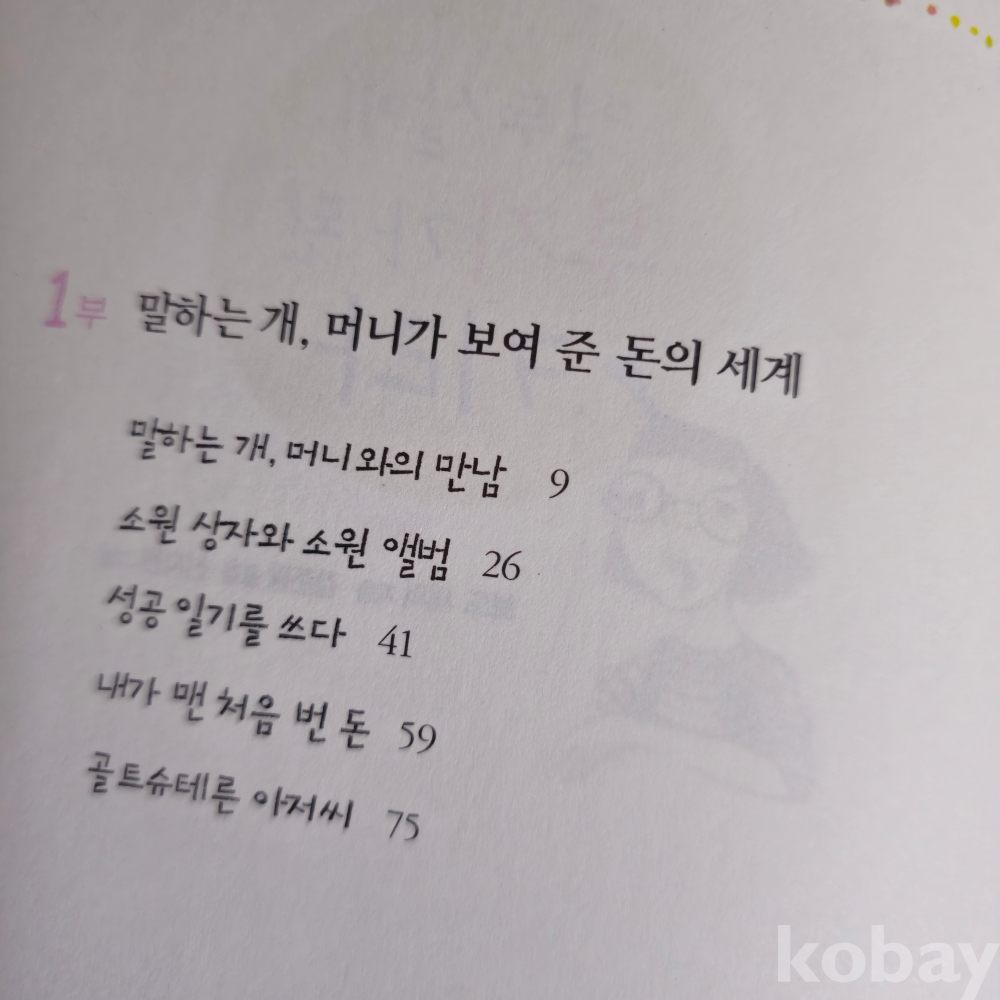 1부 말하는 개, 머니가 보여 준 돈의 세계
말하는 개, 머니와의 만남 9
소원 상자와 소원 앨범 26
성공 일기를 쓰다 41
내가 맨 처음 번 돈 59
골트슈테른 아저씨 75
kobay